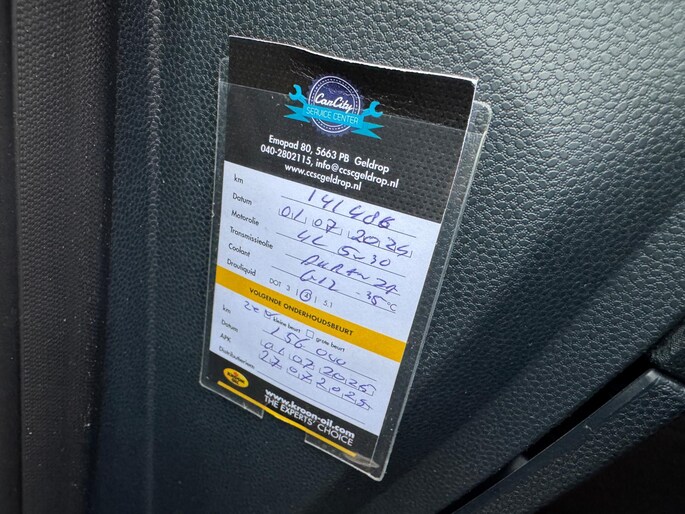 CarCity
SERVICE CENTER
Emopad 80, 5663 PB Geldrop
040-2802115, info@ccscgeldrop.nl
www.ccscgeldrop.nl
km 141 486
Datum 01 07 2024
Motorolie 4L 5w30
Transmissieolie
Coolant G12 -35°C
Drauliquid DOT 3 | 4 | 5.1
VOLGENDE ONDERHOUDSBEURT
kleine beurt grote beurt
km 156 000
Datum 01 07 2025
APK 27 07 2025
Distributieriem
www.kroon-oil.com
THE EXPERTS' CHOICE